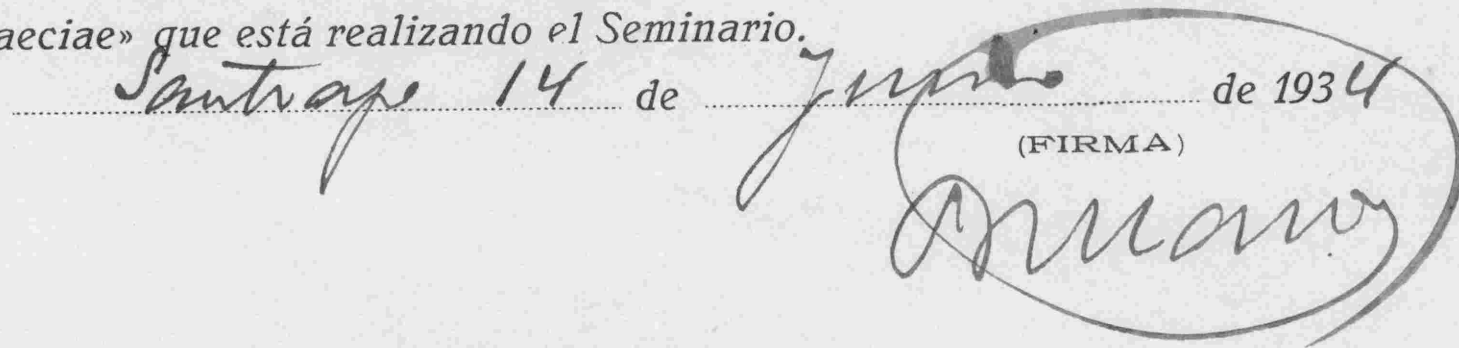 aeciae» que está realizando el Seminario.
Santiago 14 de Junio de 1934
(FIRMA)